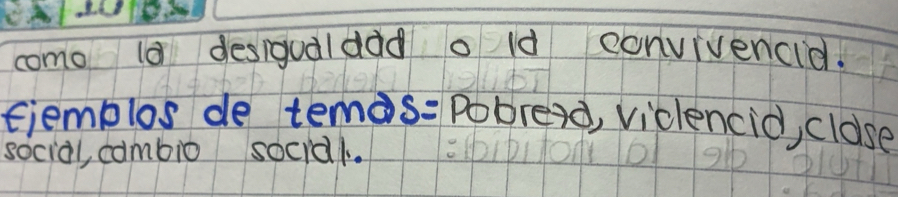 como la desigualdad o la convivencia.
Ejemplos de temas= Pobreza, violencia, clase
social, cambio social.